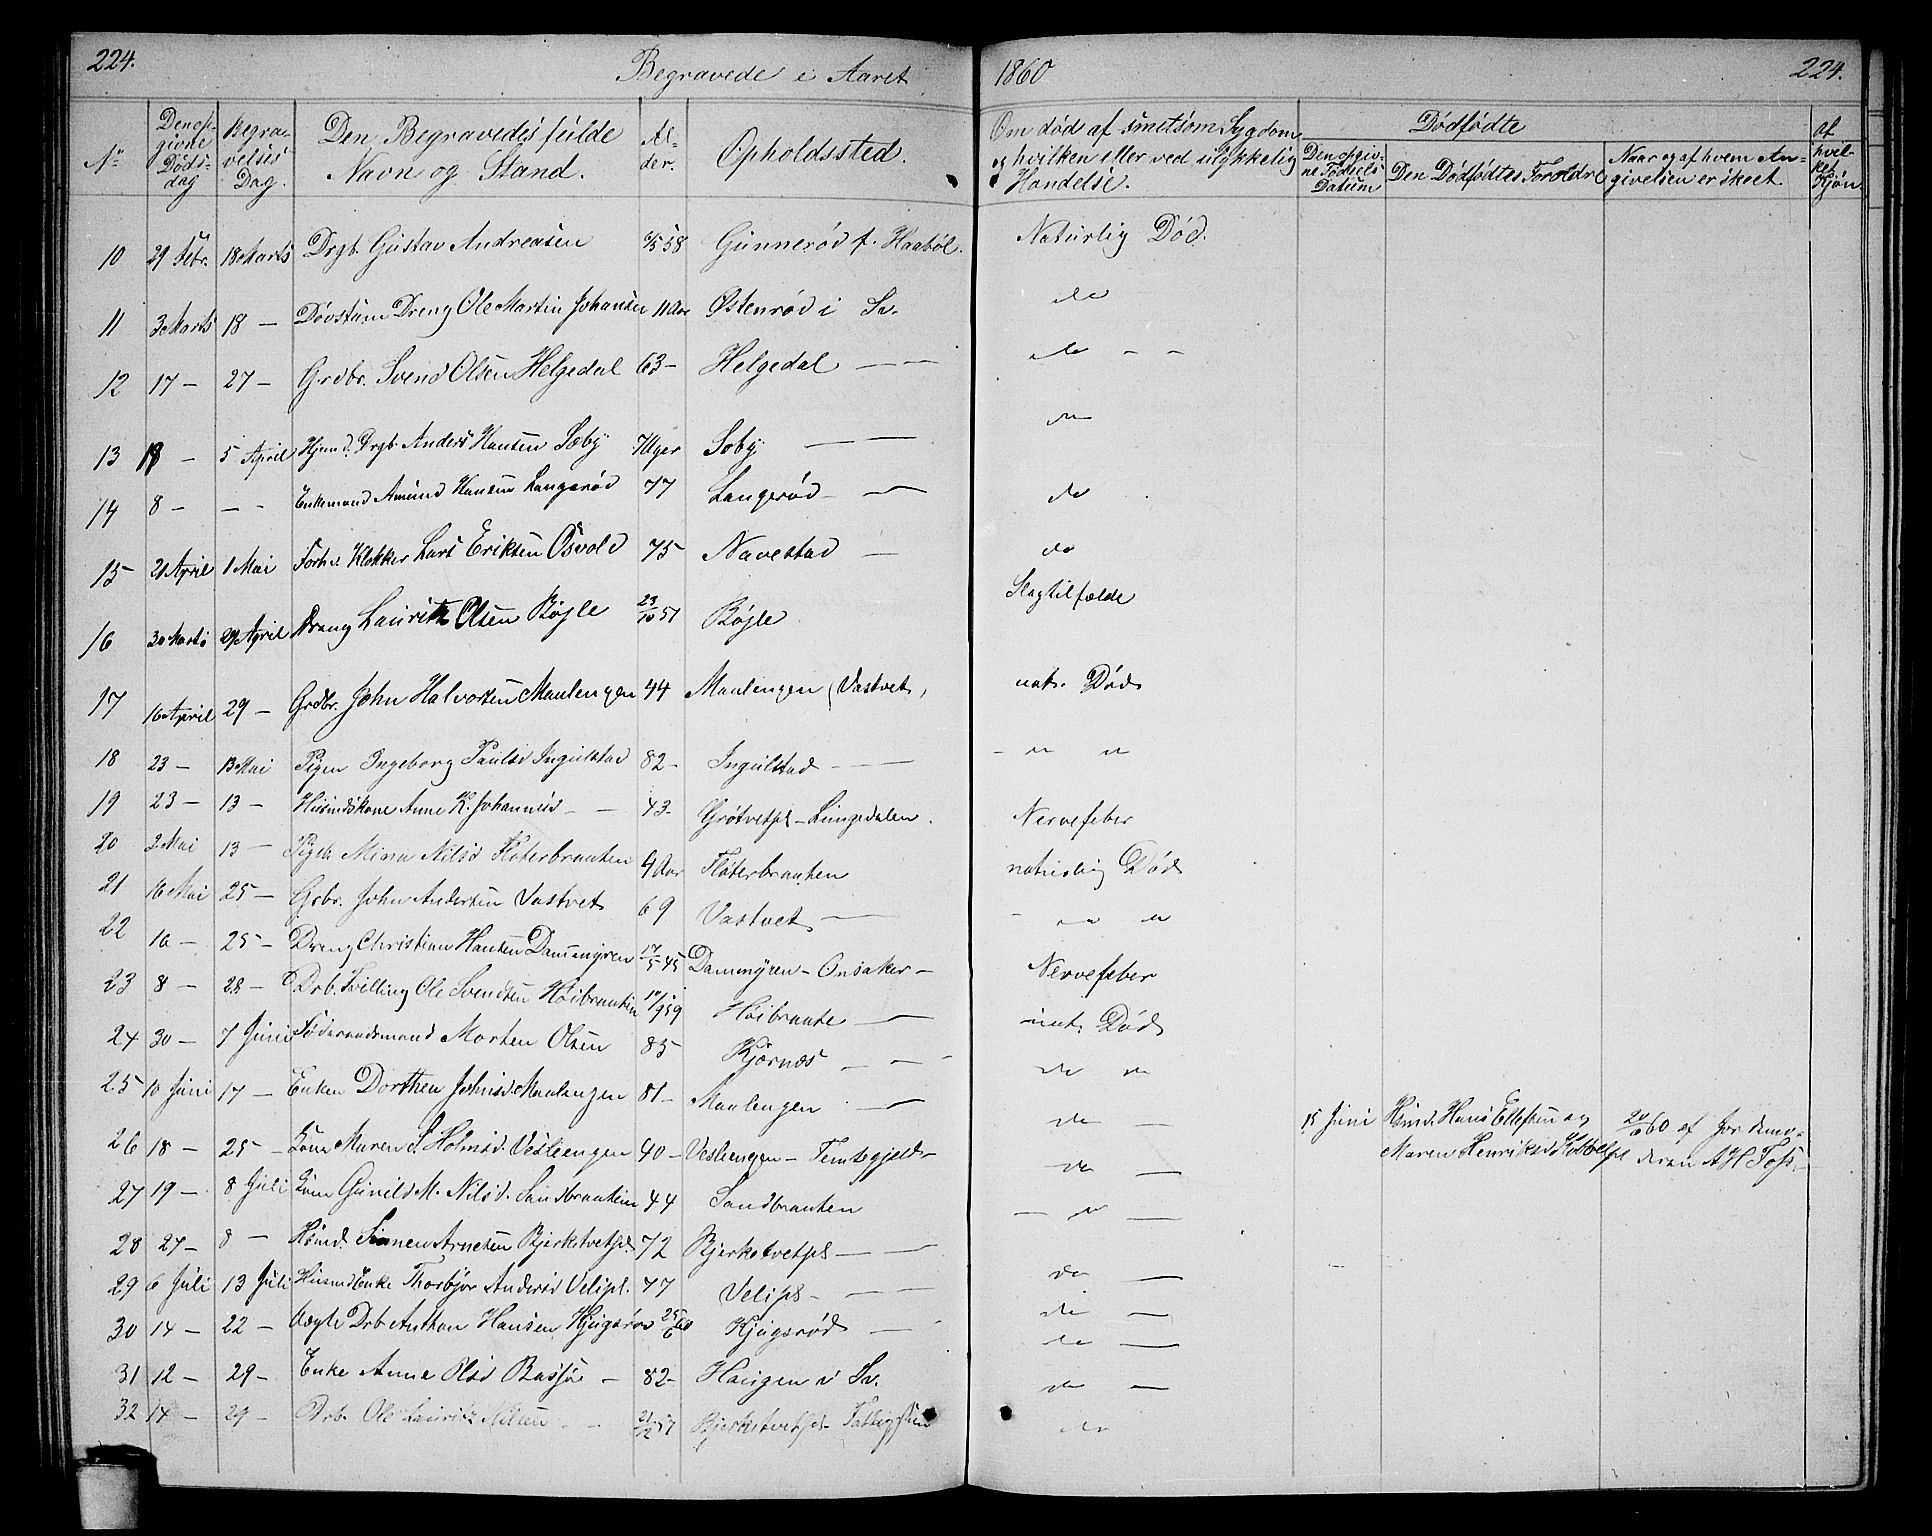 224.
Begravede i Aaret
1860
224.
No
Den op-
givne
Døds-
dag
Begra-
velses
Dag.
Den Begravedes fulde
Navn og Stand.
Al-
der.
Opholdssted.
Om død af smitsom Sygdom
og hvilken eller ved ulykkelig
Handelse.
Dødfødte
Den opgiv-
ne Fødsels
Datum
Den Dødfødtes Foroldre
Naar og af hvem An-
givelsen er skeet
af
hvil-
ket
Kjøn
10 29 Febr. 18 Marts Drgb. Gustav Andreasen 58 Gunnerød f. Haabøl. Naturlig Død.
11 3 Marts 18 — Døvstum Dreng Ole Martin Johansen 11 Aar Østenrød i Sv. do
12 17 — 27 — Grdbr. Svend Olsen Helgedal 63 — Helgedal — — do - -
13 — 5 April Drgb. Anders Hansen Sæby 7 Uger Soby — — do
14 8 — — - Enkemand Amund Hansen Langerød 77 Langerød — — do
15 21 April 1 Mai Forhv. Klokker Lars Eriksen Osvold 75 Navestad — do
16 30 Marts 29 April Dreng Lauritz Olsen Bøjle 23/10 51 Bøjle Slagtilfælde
17 16 April 29 — Grdbr. John Halvorsen Maulengen 44 Maulengen (Vastvet) nat. Død
18 23 — 13 Mai Pigen Ingeborg Paulsd Ingulstad 82 - Ingulstad — — - " "
19 23 — 13 — Husmdskone Anne K. Johannesd — — 43 - Grøtvetpl - Lungedalen. Nervefeber
20 2 Mai 13 — Pigeb Mina Nilsd Fløterbraaten 9 Aar Fløterbraaten naturlig Død
21 16 Mai 25 — Grbr. John Andersen Vastvet 69 Vastvet — - " "
22 10 — 25 — Dreng Christian Hansen Dammyren 17/5 45 Dammyren - Onsaker - Nervefeber
23 8 — 28 — Drb. Tvilling Ole Svendsen Høibraaten 10/9 59 Høibraate — nat. Død
24 30 — 7 Juni Føderaadsmand Morten Olsen 85 Kjørnæs — — do "
25 10 Juni 17 — Enken Dorthea Johnsd. Maulengen 81 - Maulengen — do —
15 Juni Hsmd. Hans Ellefsen og
Maren Henriksd
20/6 60 af Jordemo-
deren A H Foss.
26 18 — 25 — Kone Maren S. Holmsd. Vestengen 40 - Vestengen - do —
27 19 — 8 Juli Kone Gunild M. Nilsd. Sandbraaten 44 Sandbraaten — " —
28 27 — 8 — Hsmd. Simen Arnesen Bjerketvetpl. 72 Bjerketvetpl — — do —
29 6 Juli 13 Juli Husmdsenke Thorbjør Andersd Velipl. 77 Velipl - — — do —
30 14 — 22 — Uægte Drb Anthon Hansen Kjugsrød 25/6 60 Kjugsrød — do —
31 12 — 29 — Enke Anne Olsd Bassø — 82 - Haugen i Sv. do —
32 14 — 29 — Drb. Ole Lauritz Nilsen — — 21/12 57 Bjerketvetpl - do